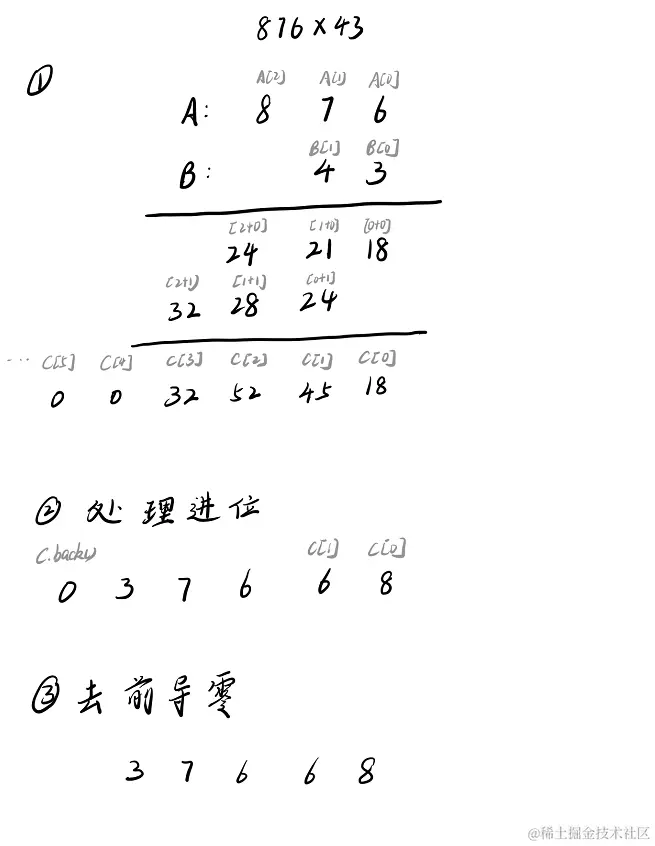 876×43
① A[2] A[1] A[0]
A: 8 7 6
B[1] B[0]
B: 4 3
[2+0] [1+0] [0+0]
24 21 18
[2+1] [1+1] [0+1]
32 28 24
... C[5] C[4] C[3] C[2] C[1] C[0]
0 0 32 52 45 18
② 处理进位
C.back() C[1] C[0]
0 3 7 6 6 8
③ 去前导零
3 7 6 6 8
@稀土掘金技术社区